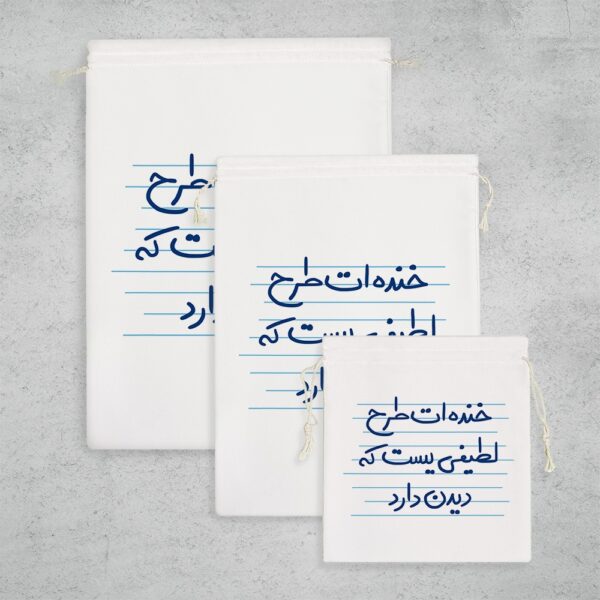 طرح
که
خنده ات طرح
لطیفی یست که
خنده ات طرح
لطیفی یست که
دیدن دارد